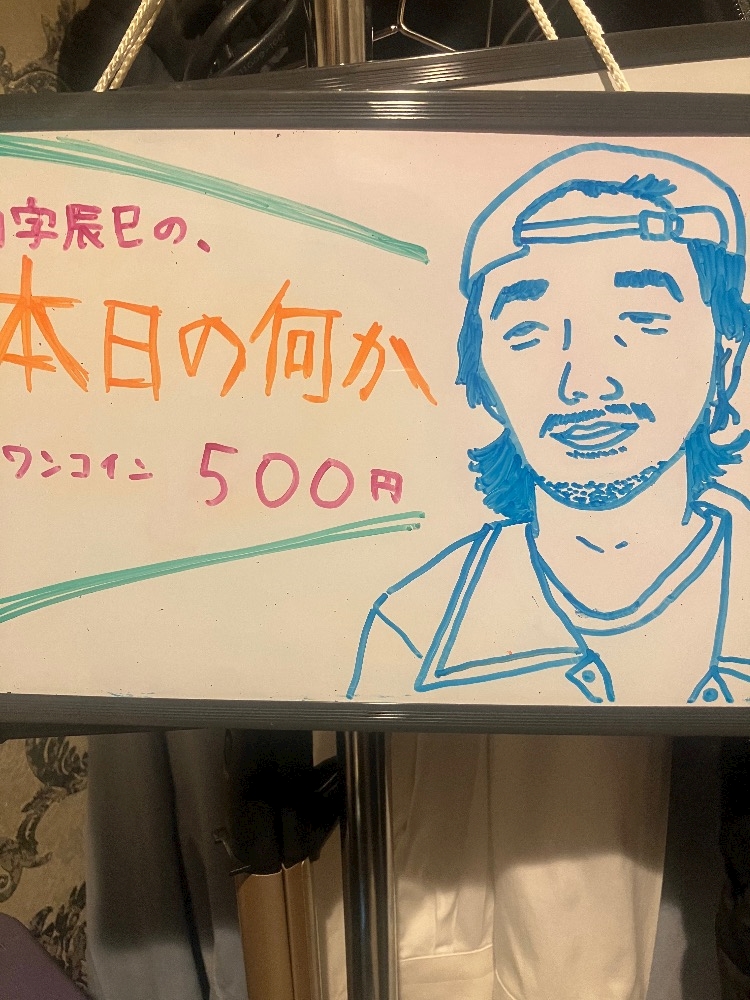 字辰巳の、
本日の何か
ワンコイン 500円